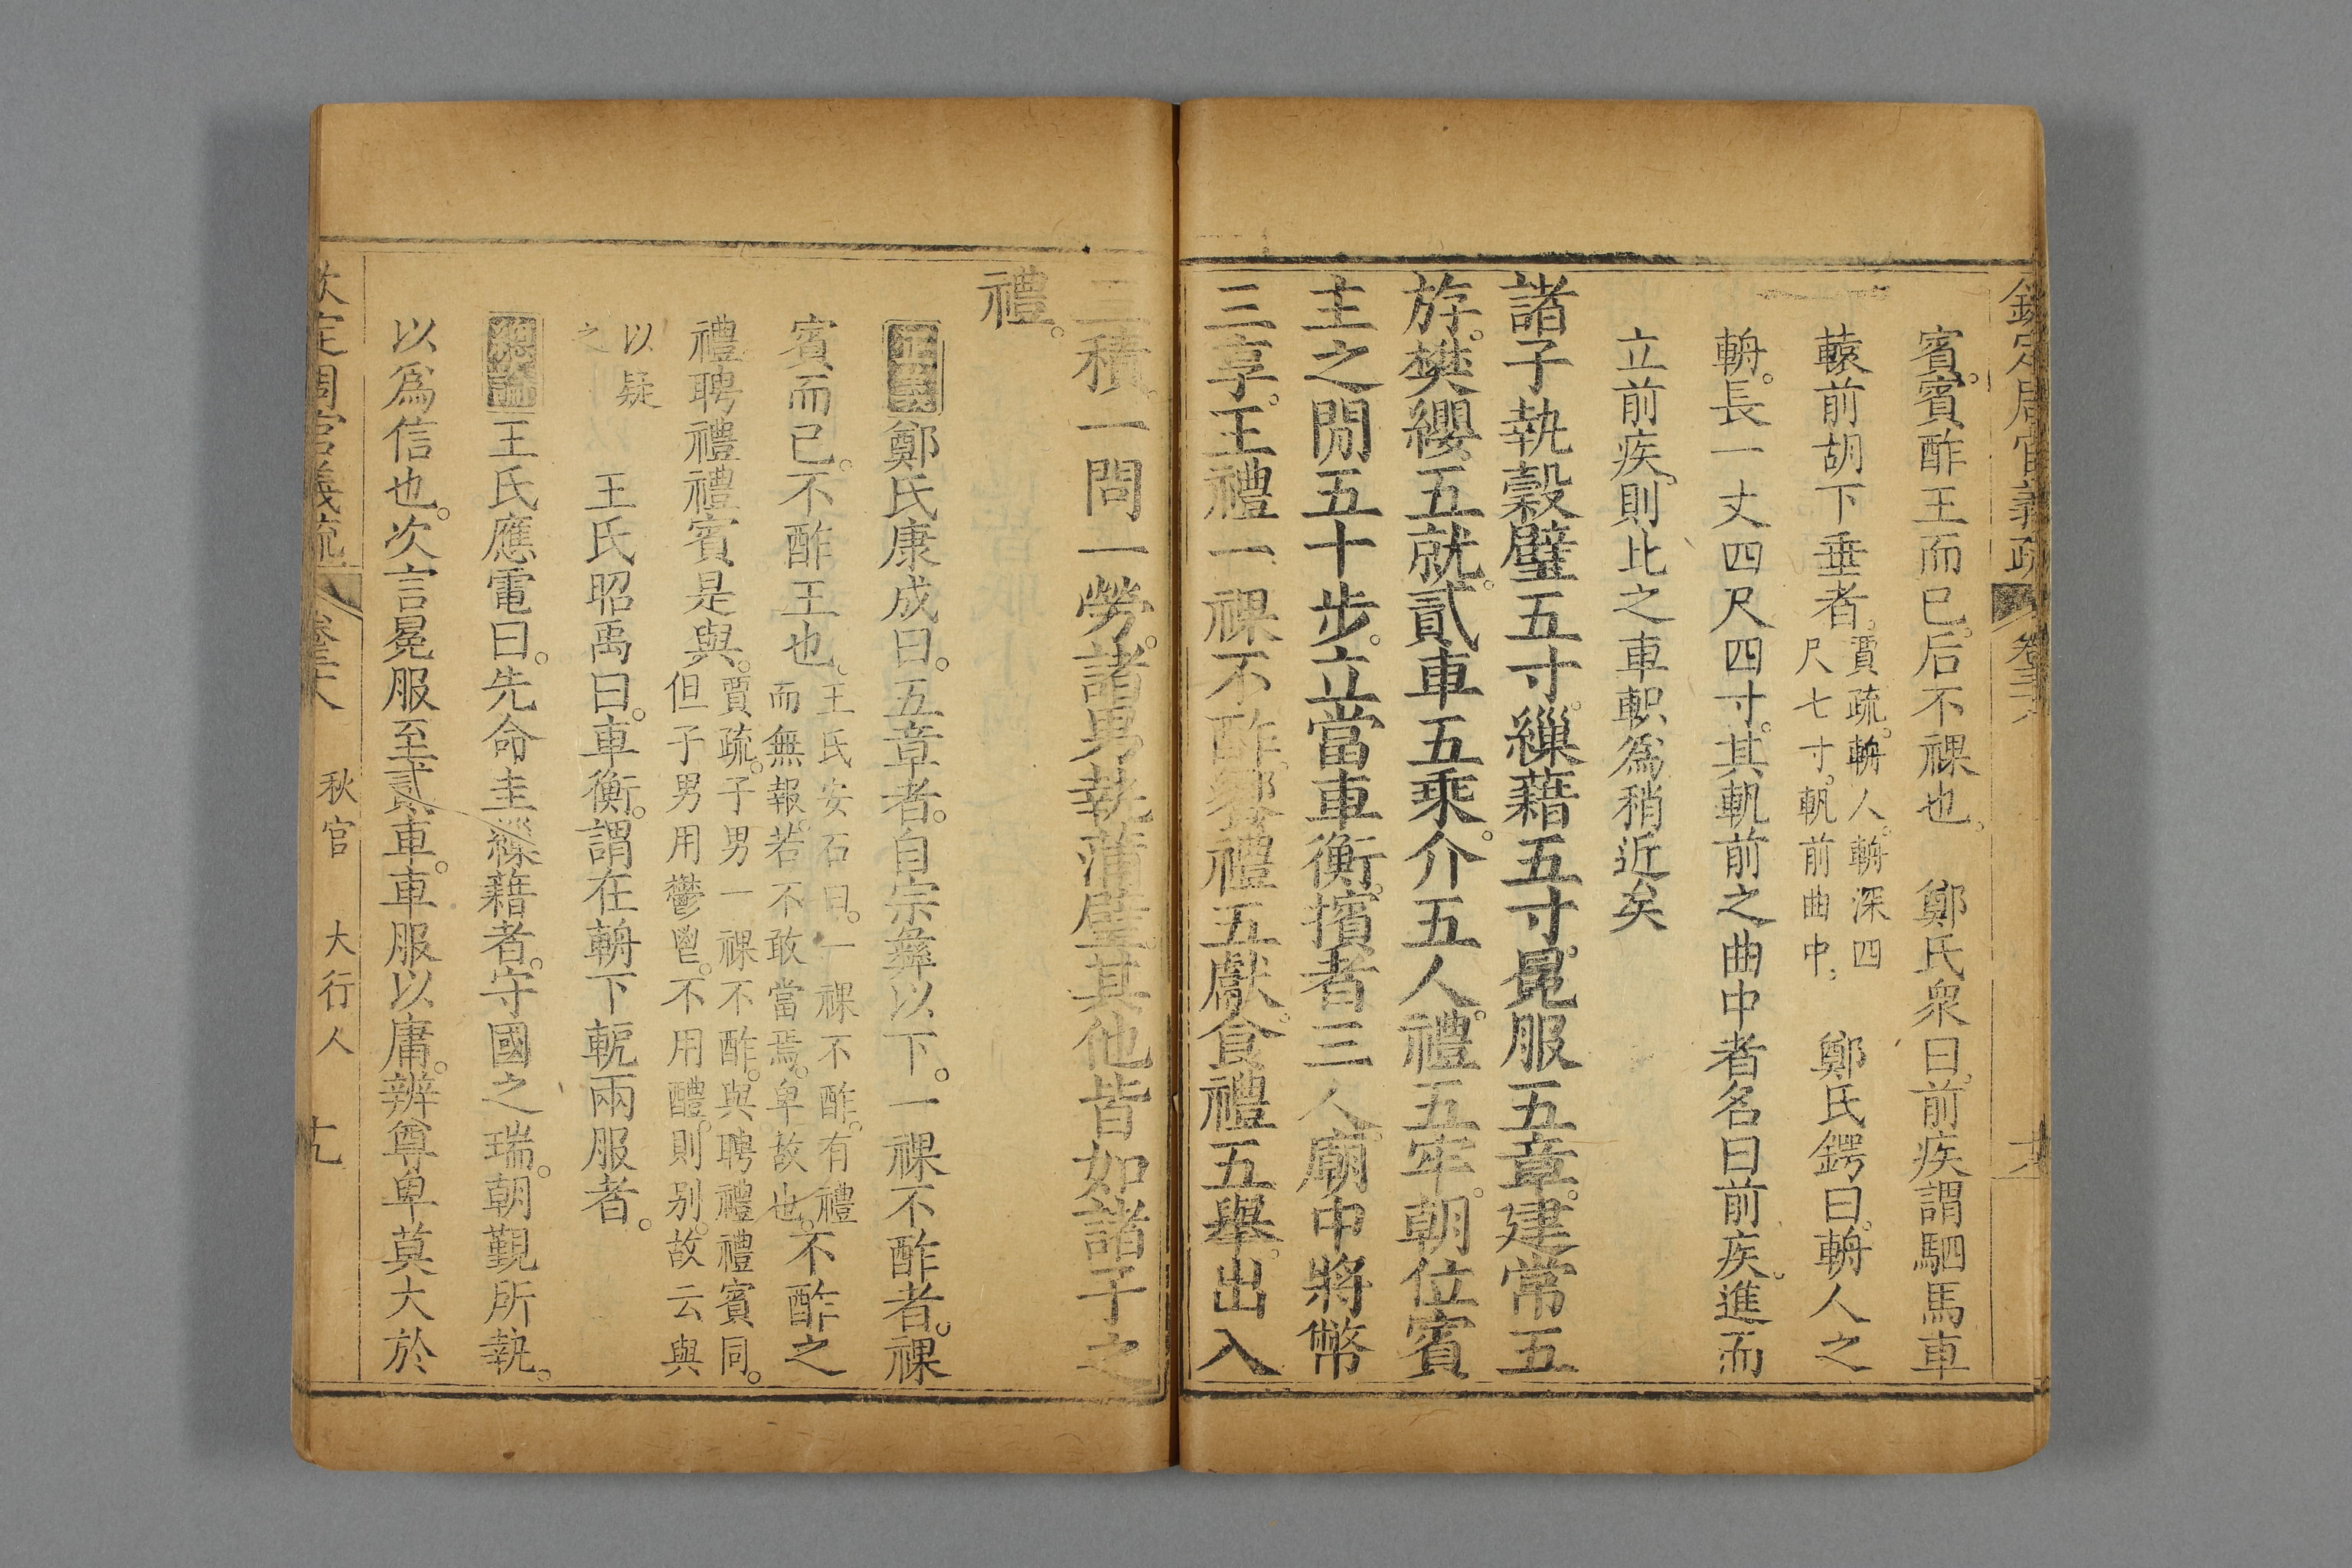 欽定周官義疏 卷三十八 十八
賓。賓酢王而已。后不祼也。 鄭氏衆曰。前疾謂駟馬車
轅前胡下垂者。賈疏。輈人。輈深四尺七寸。軓前曲中。 鄭氏鍔曰。輈人之
輈。長一丈四尺四寸。其軓前之曲中者名曰前疾。進而
立前疾。則比之車軹爲稍近矣
諸子執穀璧五寸。繅藉五寸。冕服五章。建常五
斿。樊纓五就。貳車五乘。介五人。禮五牢。朝位賓
主之閒五十步。立當車衡。擯者三人。廟中將幣
三享。王禮一祼不酢。饗禮五獻。食禮五舉。出入
三積。一問一勞。諸男執蒲璧。其他皆如諸子之
禮。
正義 鄭氏康成曰。五章者。自宗彝以下。一祼不酢者。祼
賓而已。不酢王也。王氏安石曰。一祼不酢。有禮而無報。若不敢當焉。卑故也。不酢之
禮聘禮禮賓是與。賈疏。子男一祼不酢。與聘禮禮賓同。但子男用鬱鬯。不用醴。則别。故云與
以疑之 王氏昭禹曰。車衡。謂在輈下軶兩服者。
總論 王氏應電曰。先命圭繅藉者。守國之瑞。朝覲所執。
以爲信也。次言冕服至貳車。車服以庸。辨尊卑莫大於
欽定周官義疏 卷三十八 秋官 大行人 十九